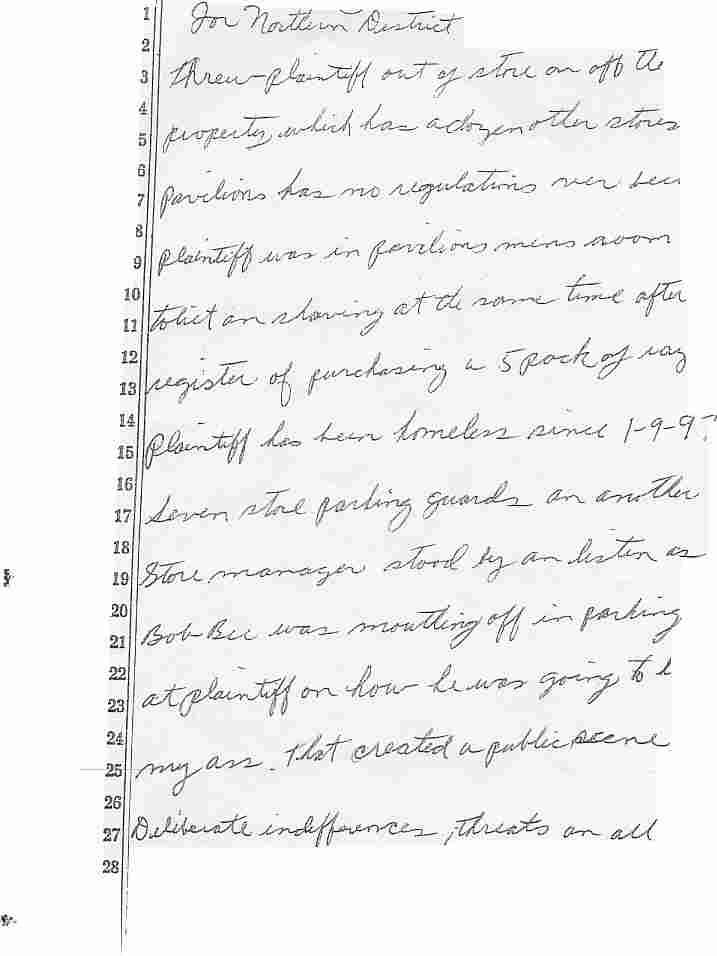 1 For Northern District
2
3 threw-plaintiff out of store an off the
4
5 property, which has a dozen other stores
6
7 Pavilions has no regulations
8
9 plaintiff was in pavilions mens room
10
11 toliet an shaving at the same time after
12
13 register of purchasing a 5 pack of
14
15 Plaintiff has been homeless since 1-9-9
16
17 Seven store parking guards an another
18
19 Store manager stood by an listen as
20
21 Bob Bee was mouthing off in parking
22
23 at plaintiff on how he was going to
24
25 my ass. That created a public scene
26
27 Deliberate indifferences, threats an all
28